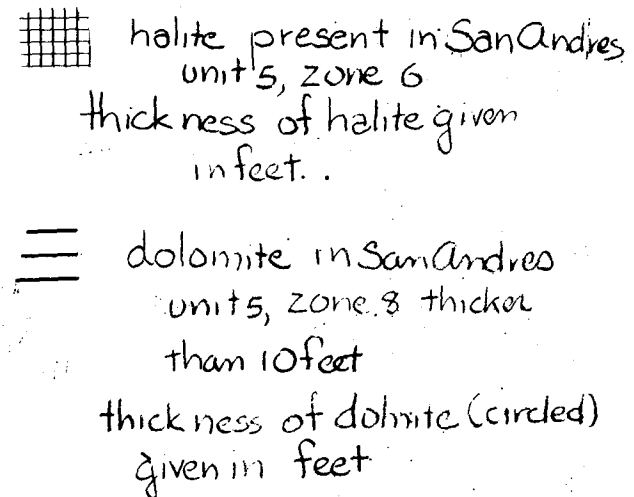 halite present in San Andres
unit 5, zone 6
thickness of halite given
in feet..
dolomite in San Andres
unit 5, zone 8 thicker
than 10 feet
thickness of dolmite (circled)
given in feet